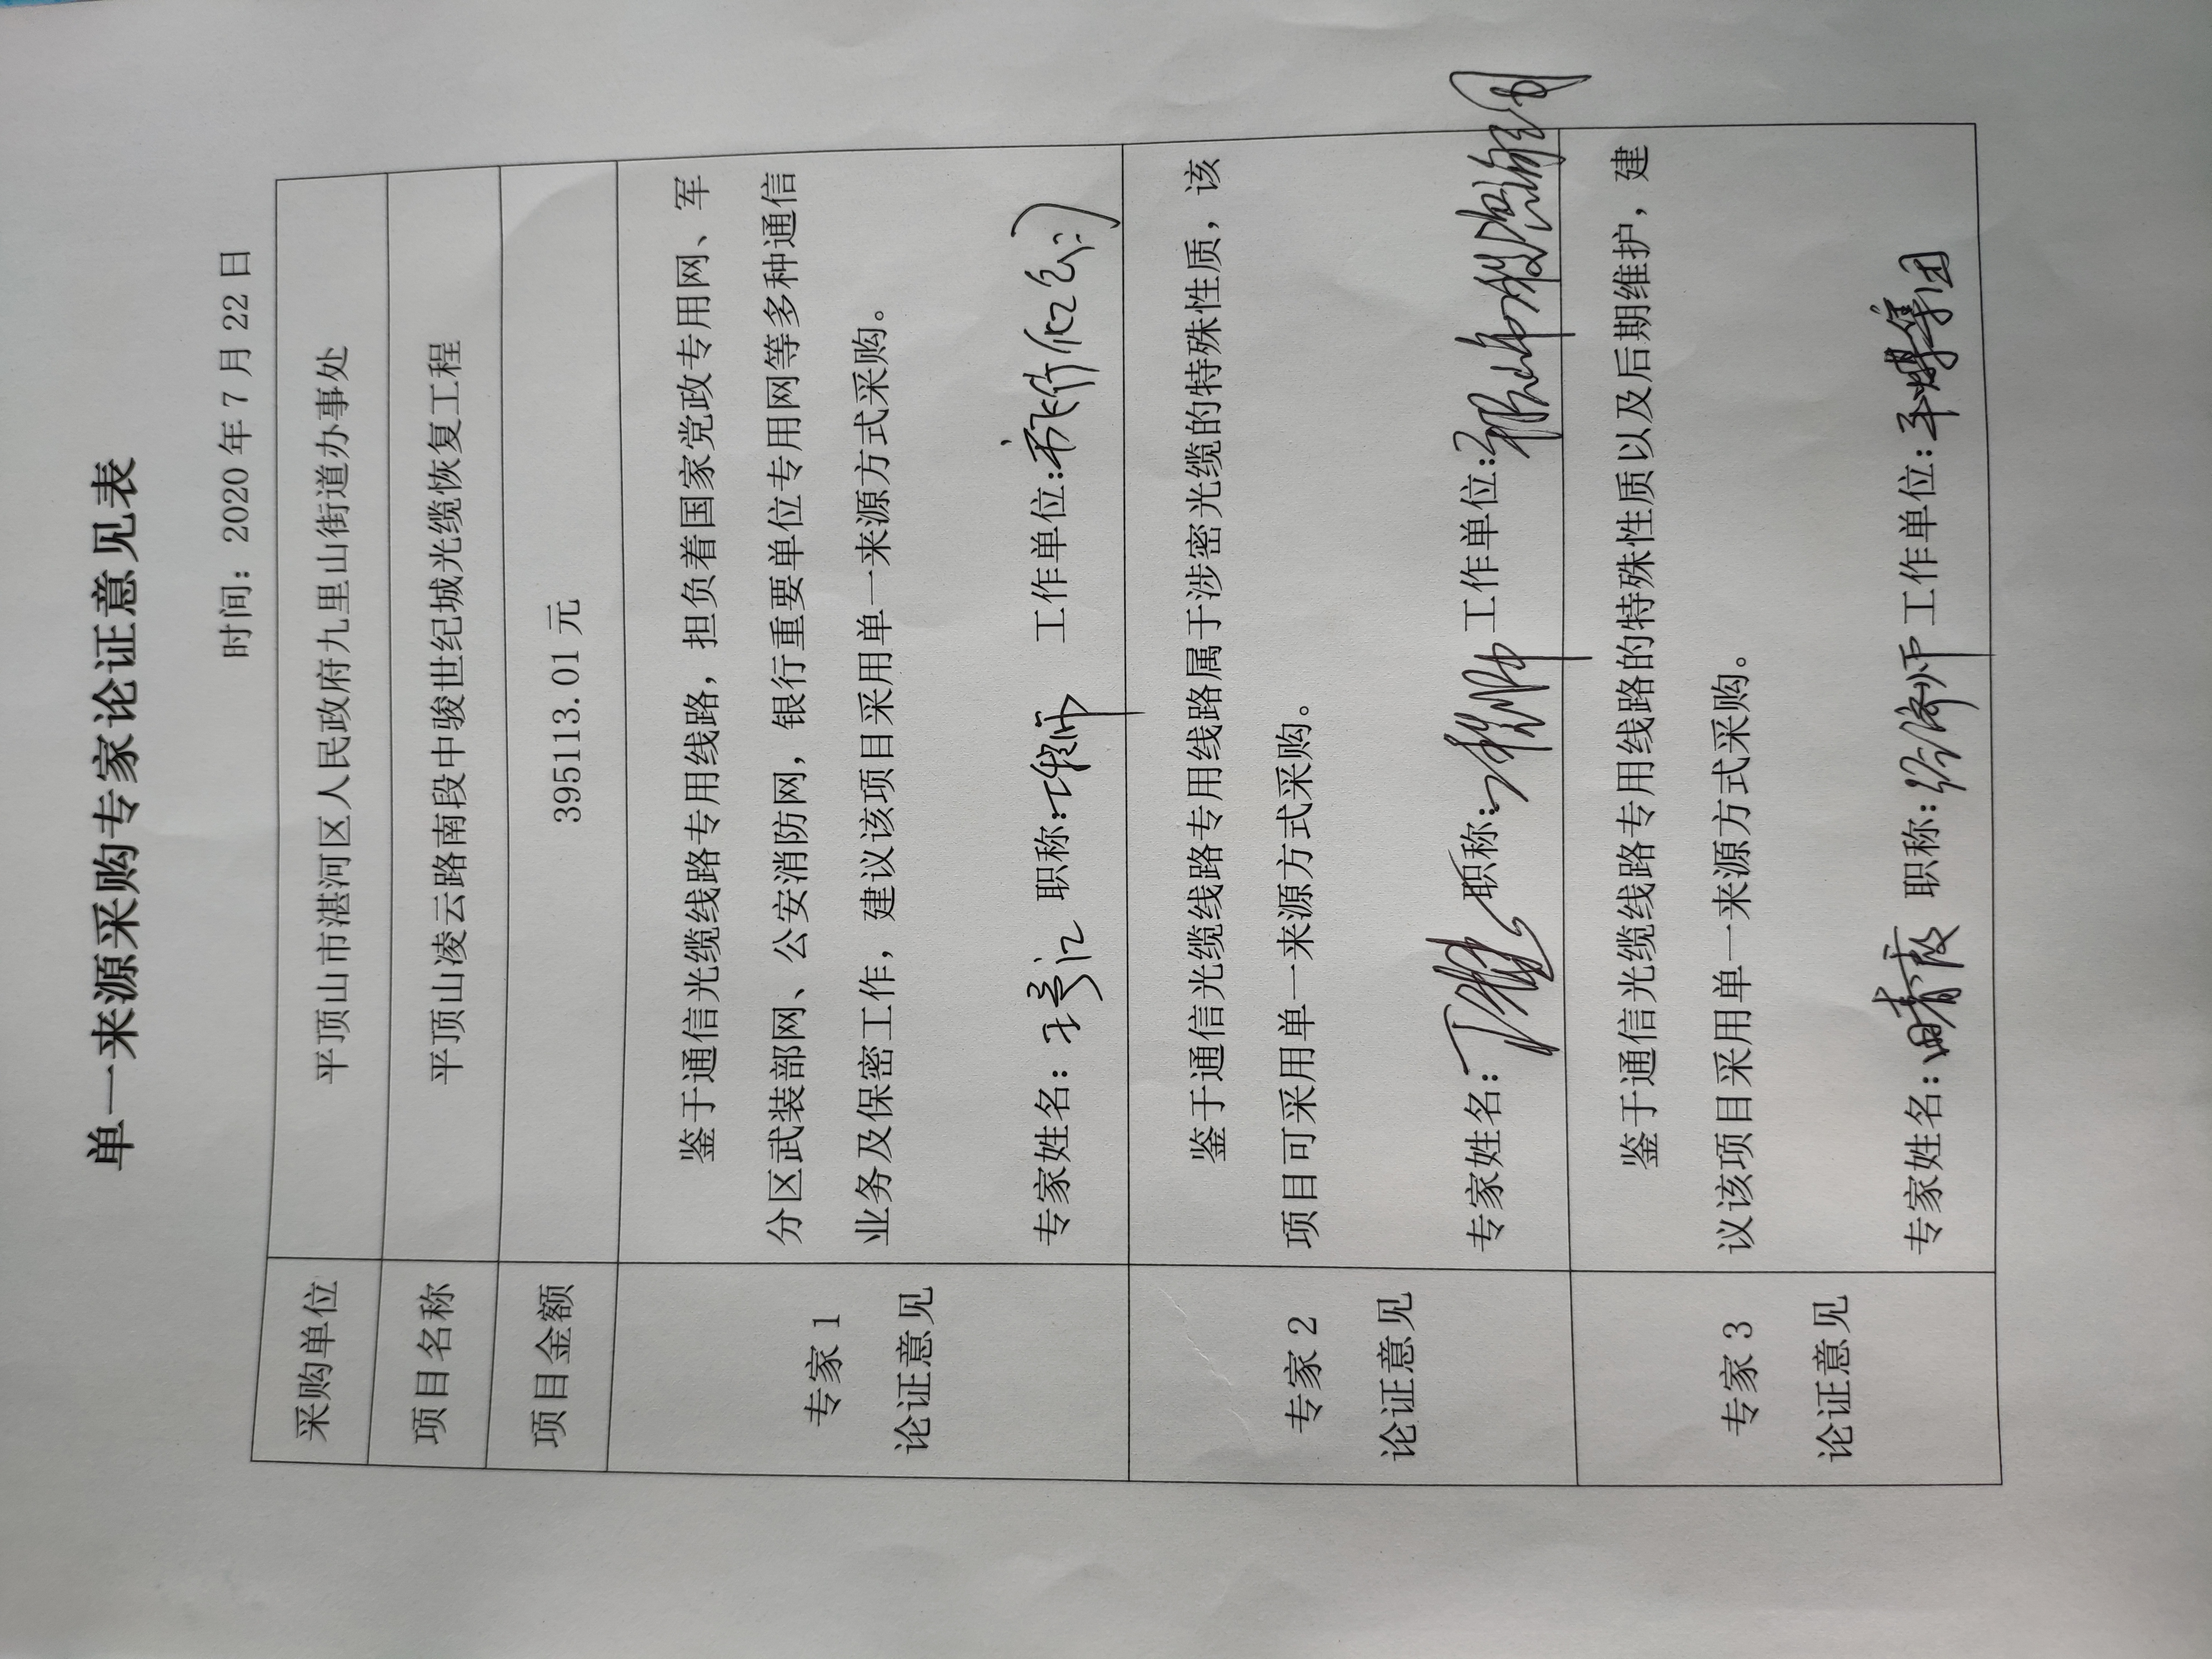 单一来源采购专家论证意见表
时间：2020年7月22日
采购单位
平顶山市湛河区人民政府九里山街道办事处
项目名称
平顶山凌云路南段中骏世纪城光缆恢复工程
项目金额
395113.01元
专家1
论证意见
鉴于通信光缆线路专用线路，担负着国家党政专用网、军
分区武装部网、公安消防网，银行重要单位专用网等多种通信
业务及保密工作，建议该项目采用单一来源方式采购。
专家姓名： 职称：工程师 工作单位：
专家2
论证意见
鉴于通信光缆线路专用线路属于涉密光缆的特殊性质，该
项目可采用单一来源方式采购。
专家姓名： 职称：工程师 工作单位：
专家3
论证意见
鉴于通信光缆线路专用线路的特殊性质以及后期维护，建
议该项目采用单一来源方式采购。
专家姓名： 职称：经济师 工作单位：平煤集团